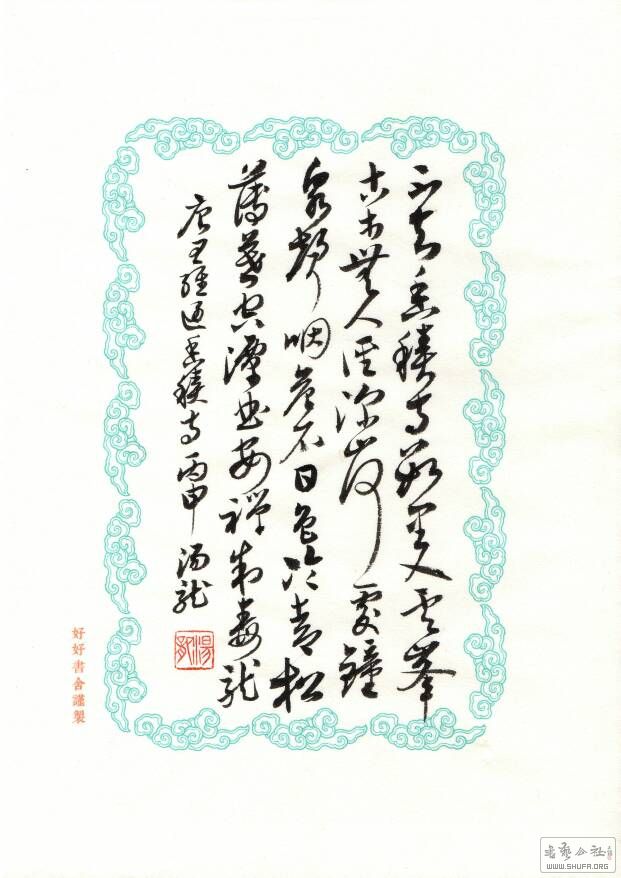 不知香積寺數里入云峯
古木無人徑深山何處鐘
泉聲咽危石日色冷青松
薄暮空潭曲安禪制毒龍
唐王維過香積寺 丙申 湯龍
湯龍
好好書舍謹製
書藝公社
WWW.SHUFA.ORG